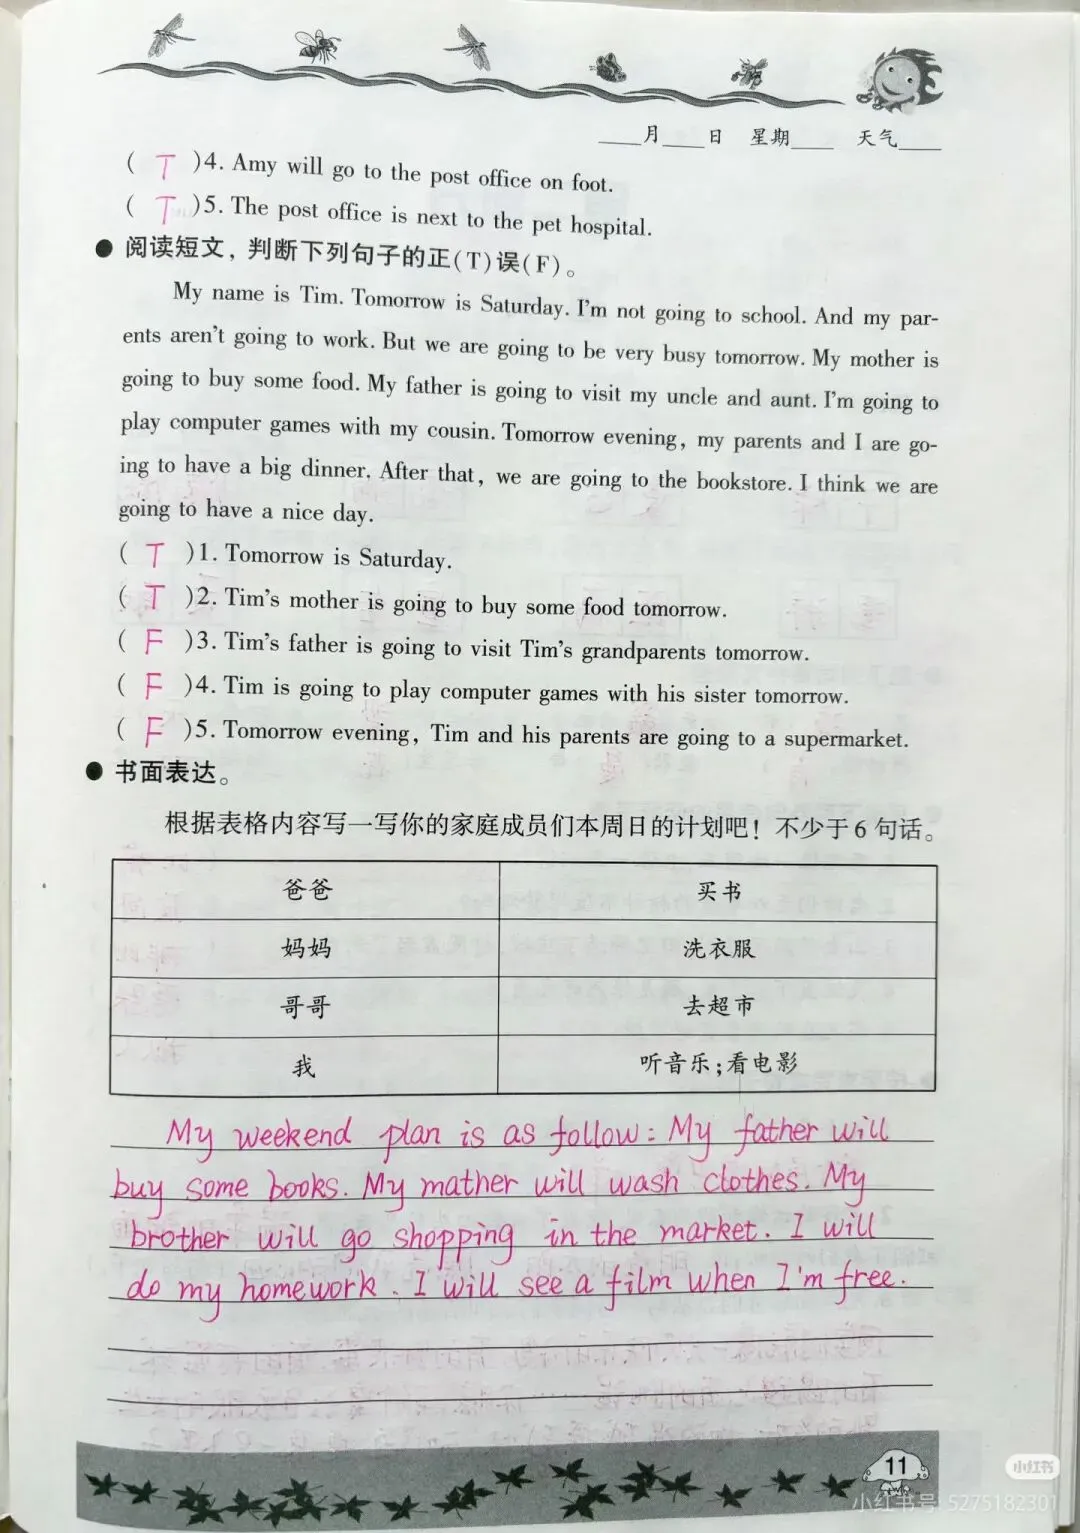 ____月____日 星期____ 天气____
( T )4. Amy will go to the post office on foot.
( T )5. The post office is next to the pet hospital.
● 阅读短文，判断下列句子的正(T)误(F)。
My name is Tim. Tomorrow is Saturday. I'm not going to school. And my par-
ents aren't going to work. But we are going to be very busy tomorrow. My mother is
going to buy some food. My father is going to visit my uncle and aunt. I'm going to
play computer games with my cousin. Tomorrow evening, my parents and I are go-
ing to have a big dinner. After that, we are going to the bookstore. I think we are
going to have a nice day.
( T )1. Tomorrow is Saturday.
( T )2. Tim's mother is going to buy some food tomorrow.
( F )3. Tim's father is going to visit Tim's grandparents tomorrow.
( F )4. Tim is going to play computer games with his sister tomorrow.
( F )5. Tomorrow evening, Tim and his parents are going to a supermarket.
● 书面表达。
根据表格内容写一写你的家庭成员们本周日的计划吧！不少于6句话。
爸爸 买书
妈妈 洗衣服
哥哥 去超市
我 听音乐；看电影
My weekend plan is as follow: My father will
buy some books. My mather will wash clothes. My
brother will go shopping in the market. I will
do my homework. I will see a film when I'm free.
11
小红书
小红书号: 5275182301